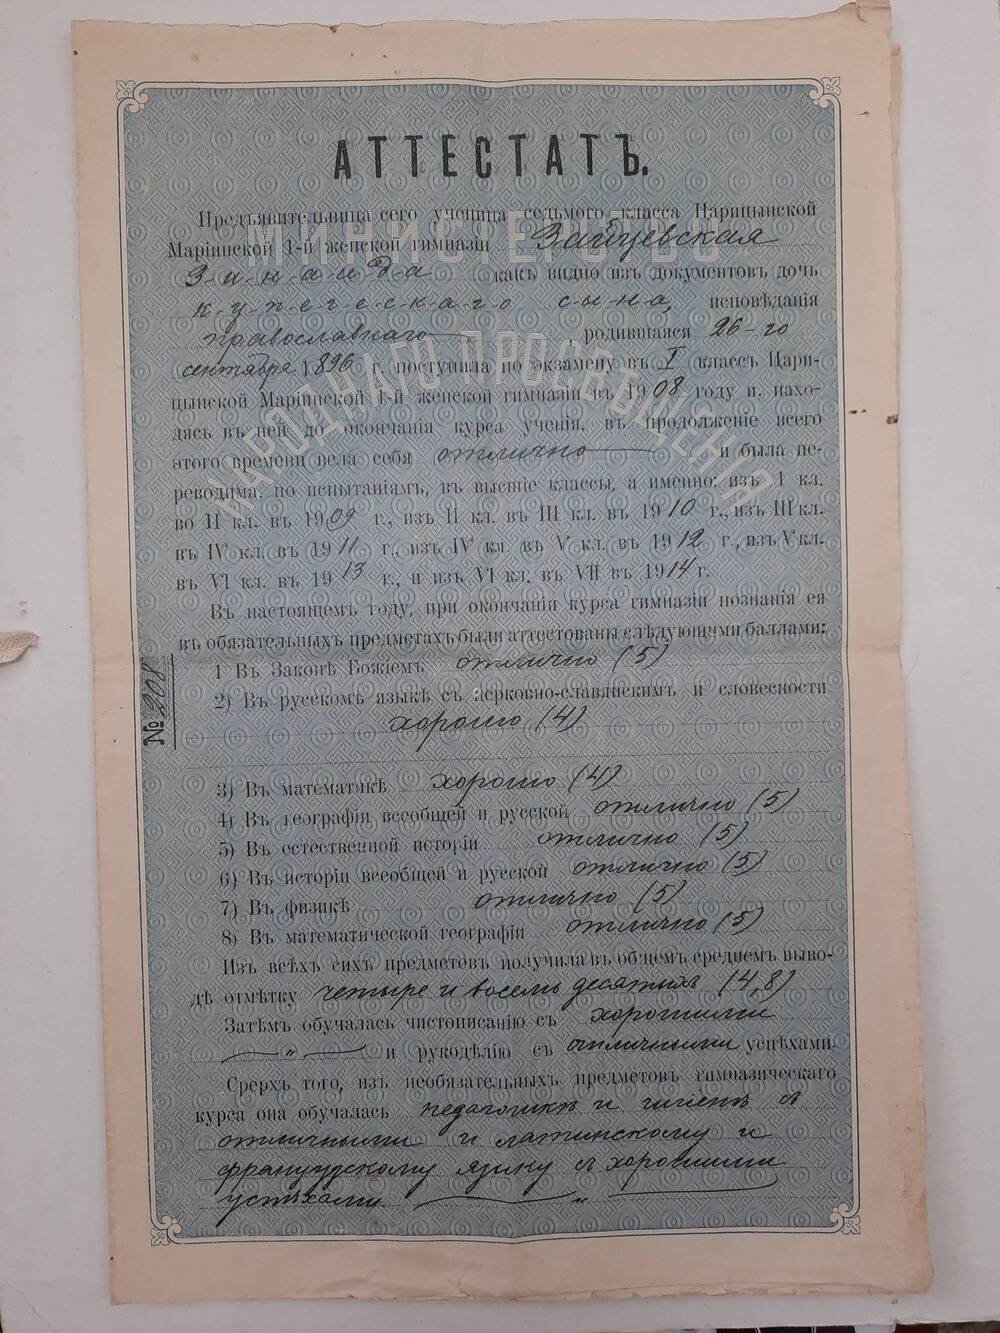 АТТЕСТАТЪ.
МИНИСТЕРСТВО
НАРОДНАГО ПРОСВѢЩЕНІЯ
Предъявительница сего ученица седьмого класса Царицынской
Маріинской 1-й женской гимназіи Зайцевская
З-и-н-а-и-д-а какъ видно изъ документовъ дочь
к-у-п-е-ч-е-с-к-а-г-о с-ы-н-а, исповѣданія
православнаго родившаяся 26-го
сентября 1896 г. поступила по экзамену въ I классъ Цари-
цынской Маріинской 1-й женской гимназіи въ 1908 году и, нахо-
дясь въ ней до окончанія курса ученія, въ продолженіе всего
этого времени вела себя отлично и была пе-
реводима, по испытаніямъ, въ высшіе классы, а именно: изъ I кл.
во II кл. въ 1909 г., изъ II кл. въ III кл. въ 1910 г., изъ III кл.
въ IV кл. въ 1911 г., изъ IV кл. въ V кл. въ 1912 г., изъ V кл.
въ VI кл. въ 1913 г., и изъ VI кл. въ VII въ 1914 г.
Въ настоящемъ году, при окончаніи курса гимназіи познанія ея
въ обязательныхъ предметахъ были аттестованы слѣдующими баллами:
1 Въ Законѣ Божіемъ отлично (5)
2) Въ русскомъ языкѣ съ церковно-славянскимъ и словесности
хорошо (4)
№ 208
3) Въ математикѣ хорошо (4)
4) Въ географіи всеобщей и русской отлично (5)
5) Въ естественной исторіи отлично (5)
6) Въ исторіи всеобщей и русской отлично (5)
7) Въ физикѣ отлично (5)
8) Въ математической географіи отлично (5)
Изъ всѣхъ сихъ предметовъ получила въ общемъ среднемъ выво-
дѣ отмѣтку четыре и восемь десятыхъ (4,8)
Затѣмъ обучалась чистописанію съ хорошими
„ и рукодѣлію съ отличными успѣхами.
Сверхъ того, изъ необязательныхъ предметовъ гимназическаго
курса она обучалась педагогикѣ и гигіенѣ съ
отличными и латинскому и
французскому языку съ хорошими
успѣхами. „